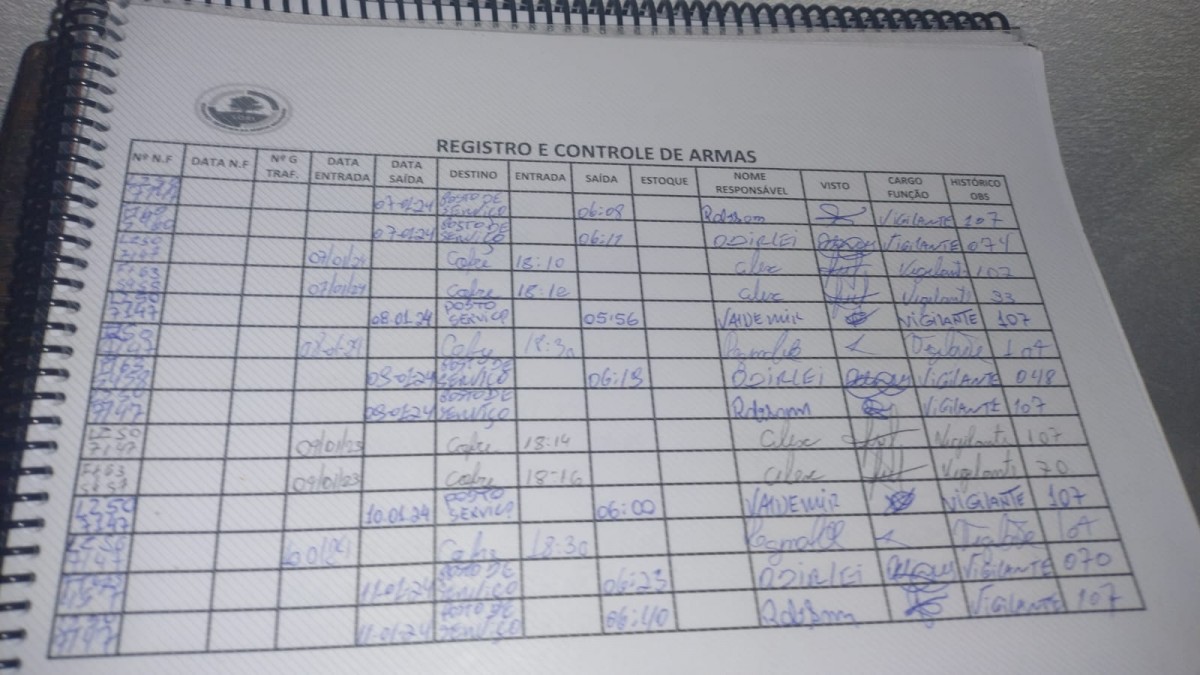 REGISTRO E CONTROLE DE ARMAS
Nº N.F DATA N.F Nº G TRAF. DATA ENTRADA DATA SAÍDA DESTINO ENTRADA SAÍDA ESTOQUE NOME RESPONSÁVEL VISTO CARGO FUNÇÃO HISTÓRICO OBS
07-01-24 POSTO DE SERVIÇO 06:08 Robson VIGILANTE 107
07-01-24 POSTO DE SERVIÇO 06:11 ODIRLEI VIGILANTE 074
LZ50 7147 07/01/24 Cofre 18:10 Alex Vigilante 107
07/01/24 Cofre 18:12 Alex Vigilante 33
7147 08.01.24 POSTO SERVIÇO 05:56 VALDEMIR VIGILANTE 107
Cofre 18:30 107
09-01-24 POSTO DE SERVIÇO 06:13 ODIRLEI VIGILANTE 048
7147 09-01-24 POSTO DE SERVIÇO Robson VIGILANTE 107
LZ50 7147 09/01/23 Cofre 18:14 Alex Vigilante 107
09/01/23 Cofre 18-16 Alex Vigilante 70
LZ50 7147 10.01.24 POSTO SERVIÇO 06:00 VALDEMIR VIGILANTE 107
7147 Cofre 18:30
11-01-24 POSTO DE SERVIÇO 06:23 ODIRLEI VIGILANTE 070
7147 11-01-24 POSTO DE SERVIÇO 06:40 Robson VIGILANTE 107